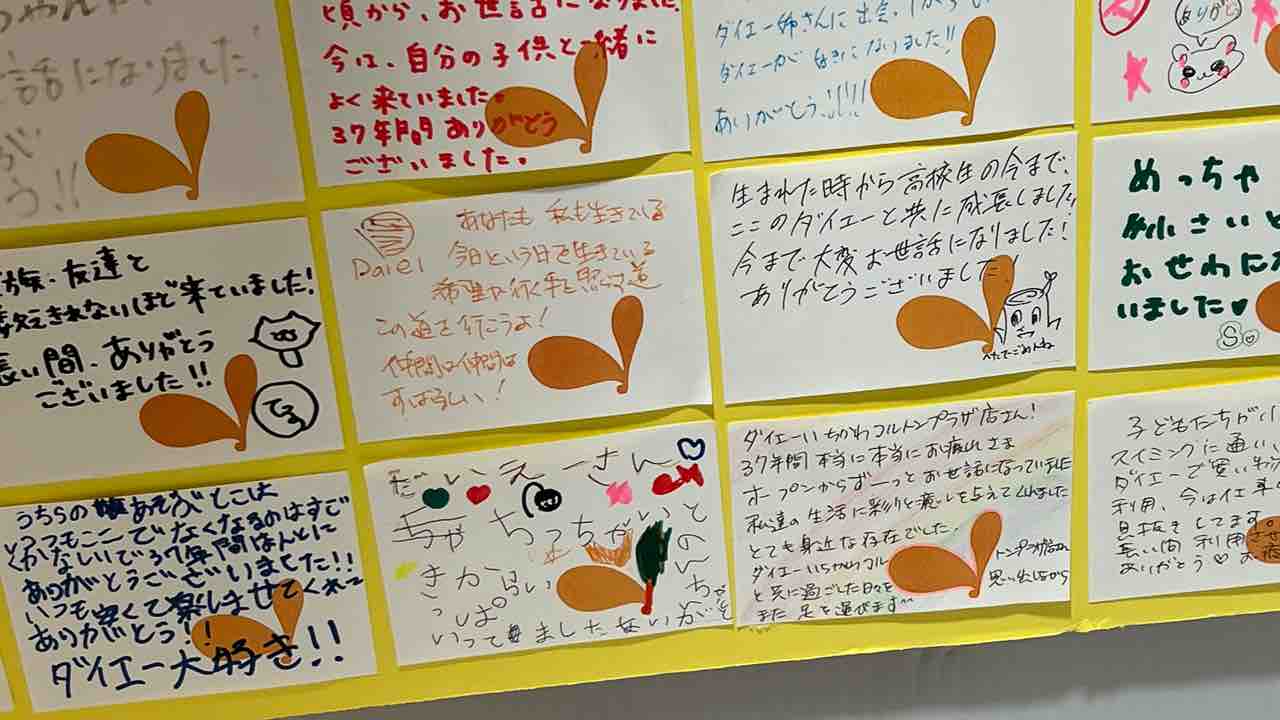 話になりました!
う!!
頃から、お世話になりました。
今は、自分の子供と一緒に
よく来ていました。
37年間ありがとう
ございました。
ダイエー姉さんに出会
ダイエーが好きになりました!!
ありがとう!!!!
族・友達と
きれないほど来ていました!
長い間、ありがとう
ございました!!
Daiei
あなたも私も生きている
今日という日を生きている
希望が行く手を照らす道
この道を行こうよ!
仲間は
すばらしい!
生まれた時から高校生の今まで、
ここのダイエーと共に成長しました。
今まで大変お世話になりました!
ありがとうございました!
へたでごめんね
めっちゃ
小さいと
おせわにな
いました♥
S
うちらのあそぶとこは
いつもここでなくなるのはすご
くかなしいで37年間ほんとに
ありがとうございました!!
いつも安くて楽しませてくれて
ありがとう!!
ダイエー大好き!!
だいえーさん
ちっちゃいと
きから
いっぱ
いって ました
ダイエーいちかわコルトンプラザ店さん!
37年間本当に本当にお疲れさま
オープンからずーっとお世話になっていました
私達の生活に彩りと癒しを与えてくれました
とても身近な存在でした。
ダイエーいちかわコル
トンプラザ店さん
と共に過ごした日々を
思い出しながら
また足を運びます
子どもたちが
スイミングに通い、
ダイエーで安い
利用、今は仕事
長い間利用させ
ありがとう♡